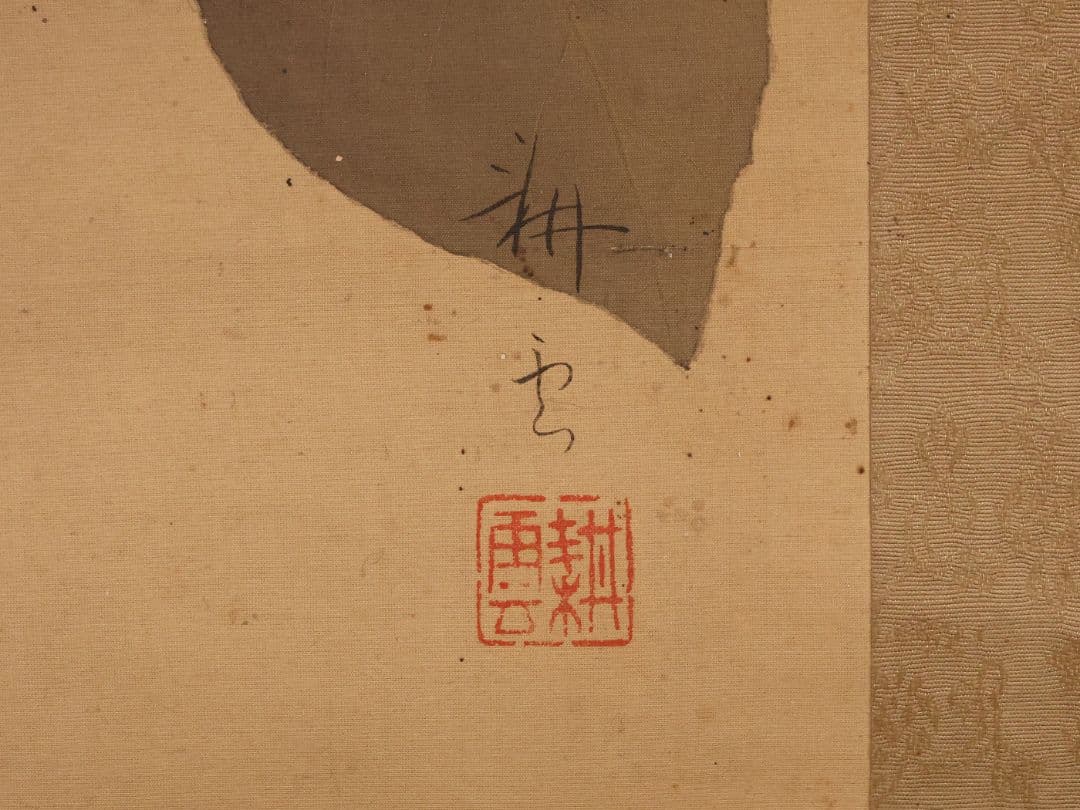 耕雲
耕雲